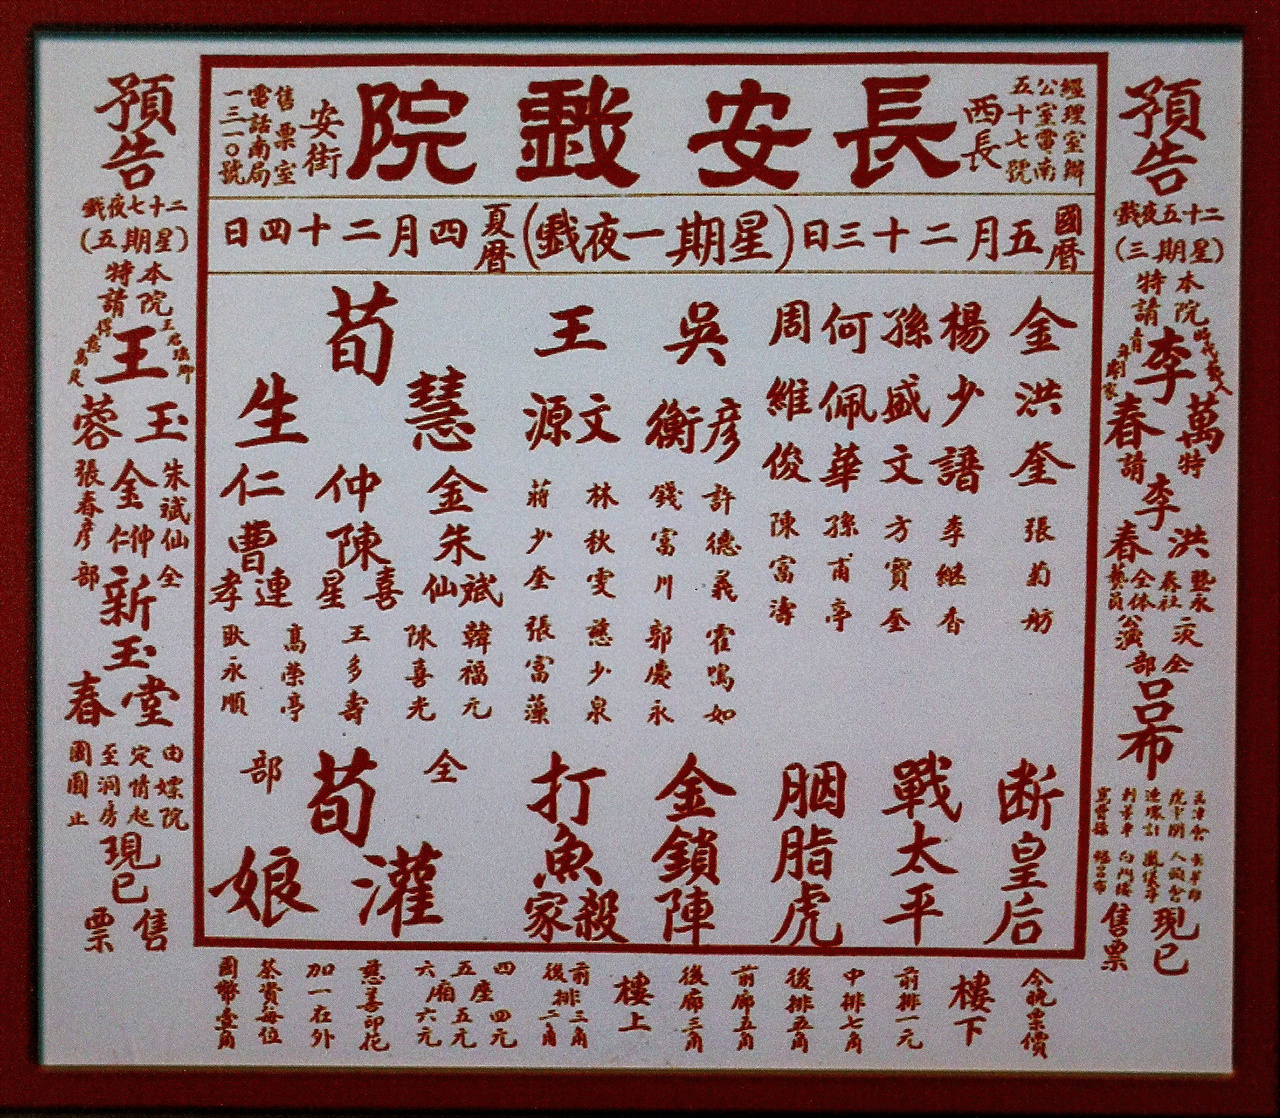 長安戲院
西長安街
經理室辦公室電南五十七號
售票室電話南局一三一〇號
國曆五月二十三日(星期一夜戲)夏曆四月二十四日
金洪奎
張菊舫
断皇后
楊少譜
李继香
孫盛文
方寶奎
戰太平
何佩華
孫甫亭
周維俊
陳富濤
胭脂虎
吳彥衡
許德義
霍鳴如
錢富川
郭慶永
金鎖陣
王文源
林秋雯
慈少泉
蔣少奎
張富藻
打魚殺家
荀慧生
金仲仁
朱斌仙
陳喜星
曹連孝
韓福元
陳喜光
王多壽
高榮亭
耿永順
全部
荀灌娘
預告
二十五夜戲
(星期三)
本院特請
李萬春
特請
李洪春
全体藝員
二次公演
全部
呂布
現已售票
預告
二十七夜戲
(星期五)
本院特請
王玉蓉
朱斌仙
金仲仁
張春彥
全部
新玉堂春
由嫖院定情起至洞房團圓止
現已售票
今晚票價
樓下
前排一元
中排七角
後排五角
前廊五角
後廊三角
樓上
前排三角
後排二角
四座四元
五座五元
六廂六元
慈善印花
加一在外
茶資每位
國幣壹角